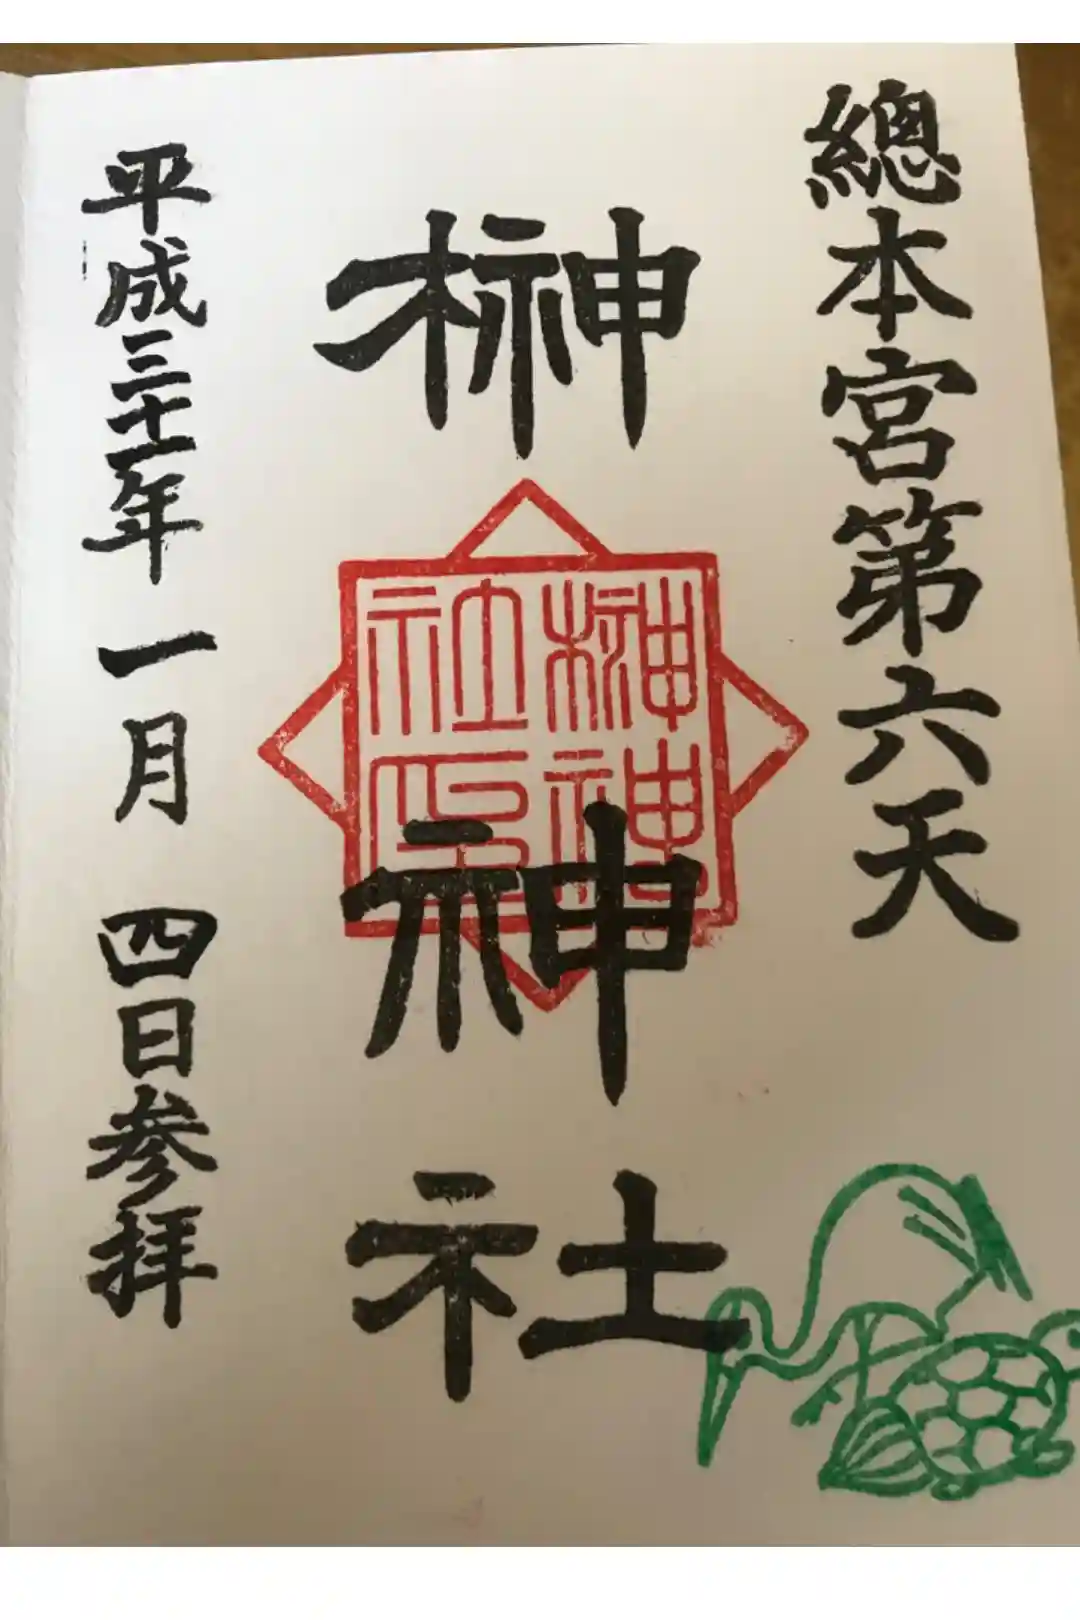 總本宮第六天
榊神社
榊神社印
平成三十一年一月四日参拝